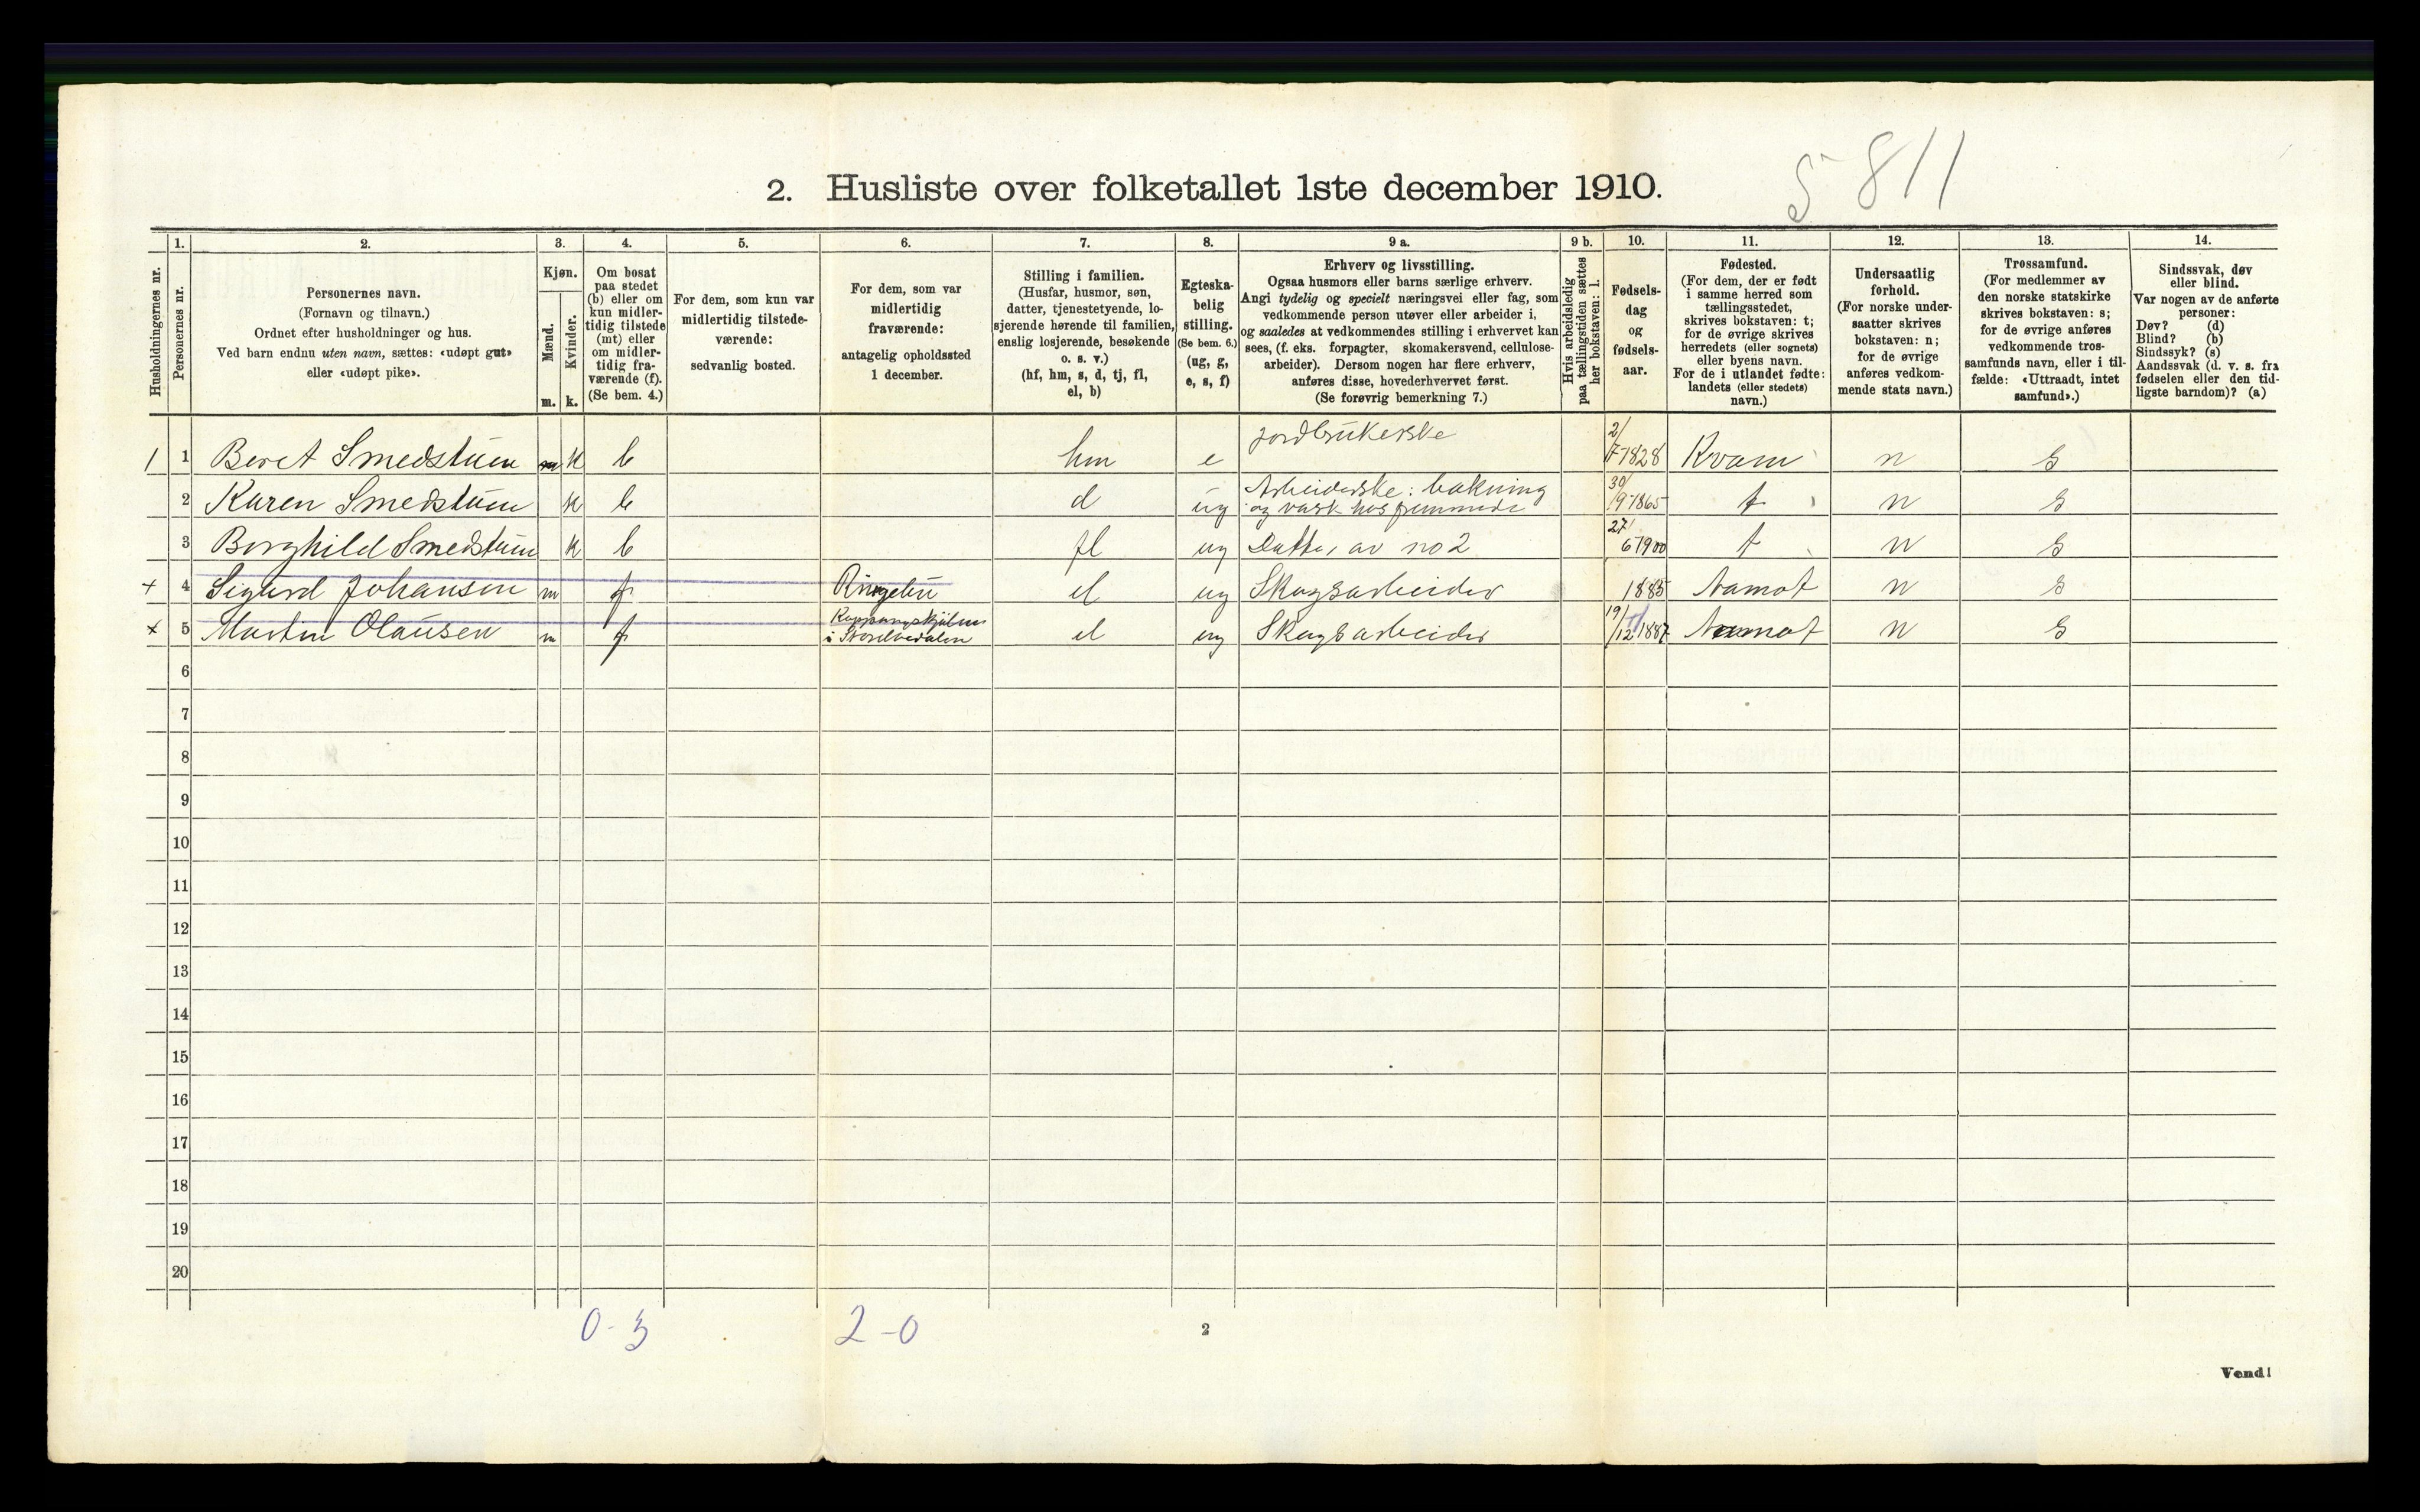 5 811
2. Husliste over folketallet 1ste december 1910.
Husholdningernes nr.
1.
Personernes nr.
2.
Personernes navn.
(Fornavn og tilnavn.)
Ordnet efter husholdninger og hus.
Ved barn endnu uten navn, sættes: «udøpt gut»
eller «udøpt pike».
3.
Kjøn.
Mænd.
Kvinder.
m. k.
4.
Om bosat
paa stedet
(b) eller om
kun midler-
tidig tilstede
(mt) eller
om midler-
tidig fra-
værende (f).
(Se bem. 4.)
5.
For dem, som kun var
midlertidig tilstede-
værende:
sedvanlig bosted.
6.
For dem, som var
midlertidig
fraværende:
antagelig opholdssted
1 december.
7.
Stilling i familien.
(Husfar, husmor, søn,
datter, tjenestetyende, lo-
sjerende hørende til familien,
enslig losjerende, besøkende
o. s. v.)
(hf, hm, s, d, tj, fl,
el, b)
8.
Egteska-
belig
stilling.
(Se bem. 6.)
(ug, g,
e, s, f)
9 a.
Erhverv og livsstilling.
Ogsaa husmors eller barns særlige erhverv.
Angi tydelig og specielt næringsvei eller fag, som
vedkommende person utøver eller arbeider i,
og saaledes at vedkommendes stilling i erhvervet kan
sees, (f. eks. forpagter, skomakersvend, cellulose-
arbeider). Dersom nogen har flere erhverv,
anføres disse, hovederhvervet først.
(Se forøvrig bemerkning 7.)
9 b.
Hvis arbeidsledig
paa tællingstiden sættes
her bokstaven: l.
10.
Fødsels-
dag
og
fødsels-
aar.
11.
Fødested.
(For dem, der er født
i samme herred som
tællingsstedet,
skrives bokstaven: t;
for de øvrige skrives
herredets (eller sognets)
eller byens navn.
For de i utlandet fødte:
landets (eller stedets)
navn.)
12.
Undersaatlig
forhold.
(For norske under-
saatter skrives
bokstaven: n;
for de øvrige
anføres vedkom-
mende stats navn.)
13.
Trossamfund.
(For medlemmer av
den norske statskirke
skrives bokstaven: s;
for de øvrige anføres
vedkommende tros-
samfunds navn, eller i til-
fælde: «Uttraadt, intet
samfund».)
14.
Sindssvak, døv
eller blind.
Var nogen av de anførte
personer:
Døv? (d)
Blind? (b)
Sindssyk? (s)
Aandssvak (d. v. s. fra
fødselen eller den tid-
ligste barndom)? (a)
1 1 Beret Smedstuen m k b hm e jordbrukerske 2/7 1828 Kvam n s
2 Karen Smedstuen k b d ug Arbeiderske: bakning
og vask hos fremmede 30/9 1865 t n s
3 Borghild Smedstuen k b fl ug Datter av no 2 27/6 1900 t n s
+ 4 Sigurd Johansen m f Ringebu el ug Skogsarbeider 1885 Aamot n s
+ 5 Martin Olausen m f Koppangskjølen
i Storelvedalen el ug Skogsarbeider 19/12 1887 Aamot n s
6
7
8
9
10
11
12
13
14
15
16
17
18
19
20
0-3 2-0
2
Vend!